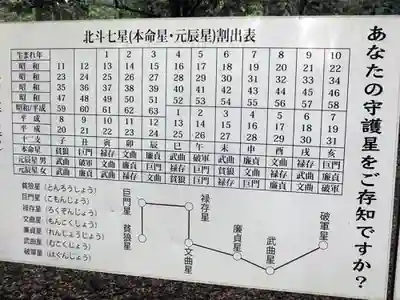 あなたの守護星をご存知ですか?
北斗七星(本命星・元辰星)割出表
生まれ年 1 2 3 4 5 6 7 8 9 10
昭和 11 12 13 14 15 16 17 18 19 20 21 22
昭和 23 24 25 26 27 28 29 30 31 32 33 34
昭和 35 36 37 38 39 40 41 42 43 44 45 46
昭和 47 48 49 50 51 52 53 54 55 56 57 58
昭和/平成 59 60 61 62 63 1 2 3 4 5 6 7
平成 8 9 10 11 12 13 14 15 16 17 18 19
平成 20 21 22 23 24 25 26 27 28 29 30 31
十二支 子 丑 寅 卯 辰 巳 午 未 申 酉 戌 亥
本命星 貪狼 巨門 禄存 文曲 廉貞 武曲 破軍 武曲 廉貞 文曲 禄存 巨門
元辰星 男
元辰星 女
貪狼星(とんろうしょう)
巨門星(こもんじょう)
禄存星(ろくぞんじょう)
文曲星(もんこくじょう)
廉貞星(れんじょうじょう)
武曲星(むこくじょう)
破軍星(はぐんじょう)
巨門星
貪狼星
禄存星
文曲星
廉貞星
武曲星
破軍星